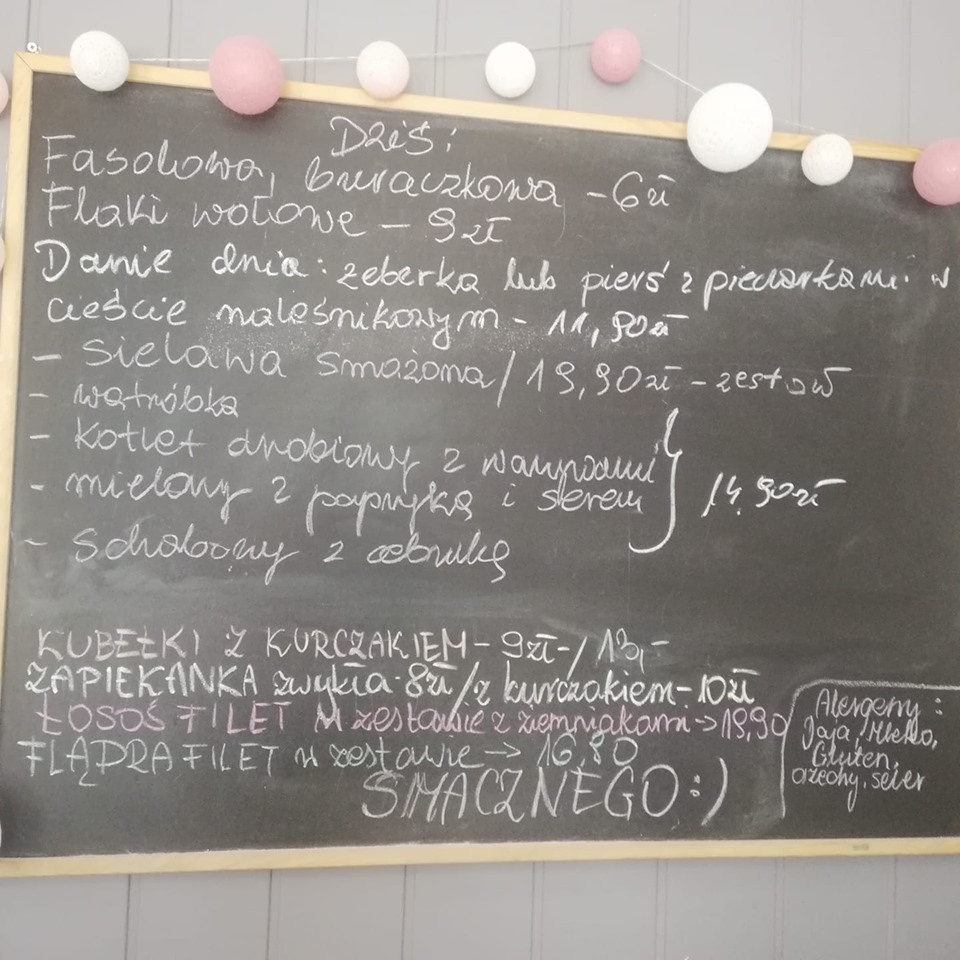 Dziś:
Fasolowa, buraczkowa - 6zł
Flaki wołowe - 9zł
Danie dnia: żeberka lub pierś z pieczarkami w
cieście naleśnikowym - 11,90zł
- Sielawa smażona / 19,90zł - zestaw
- wątróbka
- kotlet drobiowy z warzywami
- mielony z papryką i serem } 14,90zł
- Schabowy z cebulką
KUBEŁKI Z KURCZAKIEM - 9zł - / 13,-
ZAPIEKANKA zwykła - 8zł / z kurczakiem - 10zł
ŁOSOŚ FILET w zestawie z ziemniakami → 19,90
FLĄDRA FILET w zestawie → 16,80
SMACZNEGO :)
Alergeny:
Jaja, Mleko,
Gluten,
orzechy, seler